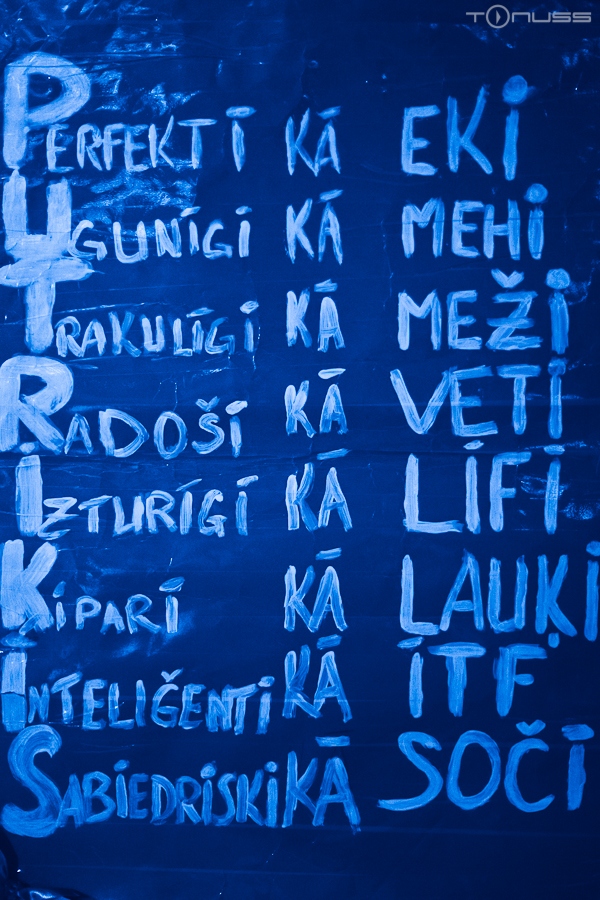 TONUSS
PERFEKTI KĀ EKI
UGUNĪGI KĀ MEHI
TRAKULĪGI KĀ MEŽI
RADOŠI KĀ VETI
IZTURĪGI KĀ LIFI
ĶIPARI KĀ LAUĶI
INTELIĢENTI KĀ ITF
SABIEDRISKI KĀ SOČI